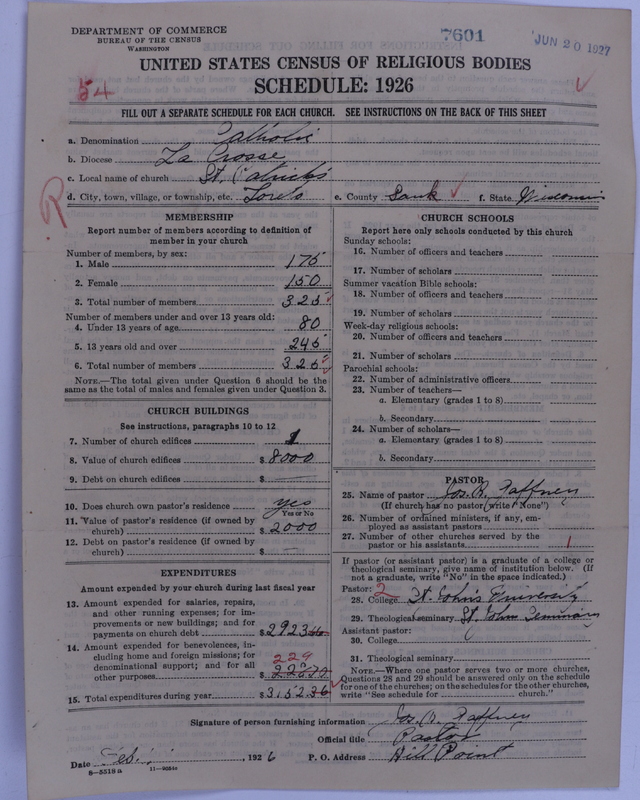 DEPARTMENT OF COMMERCE
BUREAU OF THE CENSUS
WASHINGTON
7601
JUN 20 1927
UNITED STATES CENSUS OF RELIGIOUS BODIES
SCHEDULE: 1926
54
FILL OUT A SEPARATE SCHEDULE FOR EACH CHURCH. SEE INSTRUCTIONS ON THE BACK OF THIS SHEET
a. Denomination Catholic
b. Diocese La Crosse
c. Local name of church St. Patricks
d. City, town, village, or township, etc. Loreto e. County Sauk f. State Wisconsin
R
MEMBERSHIP
Report number of members according to definition of
member in your church
Number of members, by sex:
1. Male 175
2. Female 150
3. Total number of members 325
Number of members under and over 13 years old:
4. Under 13 years of age 80
5. 13 years old and over 245
6. Total number of members 325
NOTE.—The total given under Question 6 should be the
same as the total of males and females given under Question 3.
CHURCH BUILDINGS
See instructions, paragraphs 10 to 12
7. Number of church edifices 1
8. Value of church edifices $ 8000
9. Debt on church edifices $ —
10. Does church own pastor's residence yes
Yes or No
11. Value of pastor's residence (if owned by
church) $ 2000
12. Debt on pastor's residence (if owned by
church) $ —
EXPENDITURES
Amount expended by your church during last fiscal year
13. Amount expended for salaries, repairs,
and other running expenses; for im-
provements or new buildings; and for
payments on church debt $ 2923
14. Amount expended for benevolences, in-
cluding home and foreign missions; for
denominational support; and for all
other purposes $
229
15. Total expenditures during year $ 3152
CHURCH SCHOOLS
Report here only schools conducted by this church
Sunday schools:
16. Number of officers and teachers
17. Number of scholars
Summer vacation Bible schools:
18. Number of officers and teachers
19. Number of scholars
Week-day religious schools:
20. Number of officers and teachers
21. Number of scholars
Parochial schools:
22. Number of administrative officers
23. Number of teachers—
a. Elementary (grades 1 to 8)
b. Secondary
24. Number of scholars—
a. Elementary (grades 1 to 8)
b. Secondary
PASTOR
25. Name of pastor Jos. Gaffney
(If church has no pastor write "None")
26. Number of ordained ministers, if any, em-
ployed as assistant pastors
27. Number of other churches served by the
pastor or his assistants 1
If pastor (or assistant pastor) is a graduate of a college or
theological seminary, give name of institution below. (If
not a graduate, write "No" in the space indicated.)
Pastor: 2
28. College St. Johns University
29. Theological seminary St. Johns Seminary
Assistant pastor:
30. College
31. Theological seminary
NOTE.—Where one pastor serves two or more churches,
Questions 28 and 29 should be answered only on the schedule
for one of the churches; on the schedules for the other churches,
write "See schedule for church."
Signature of person furnishing information Jos. Gaffney
Official title Pastor
Date Feb. , 1926 P. O. Address Hill Point
8—5518a